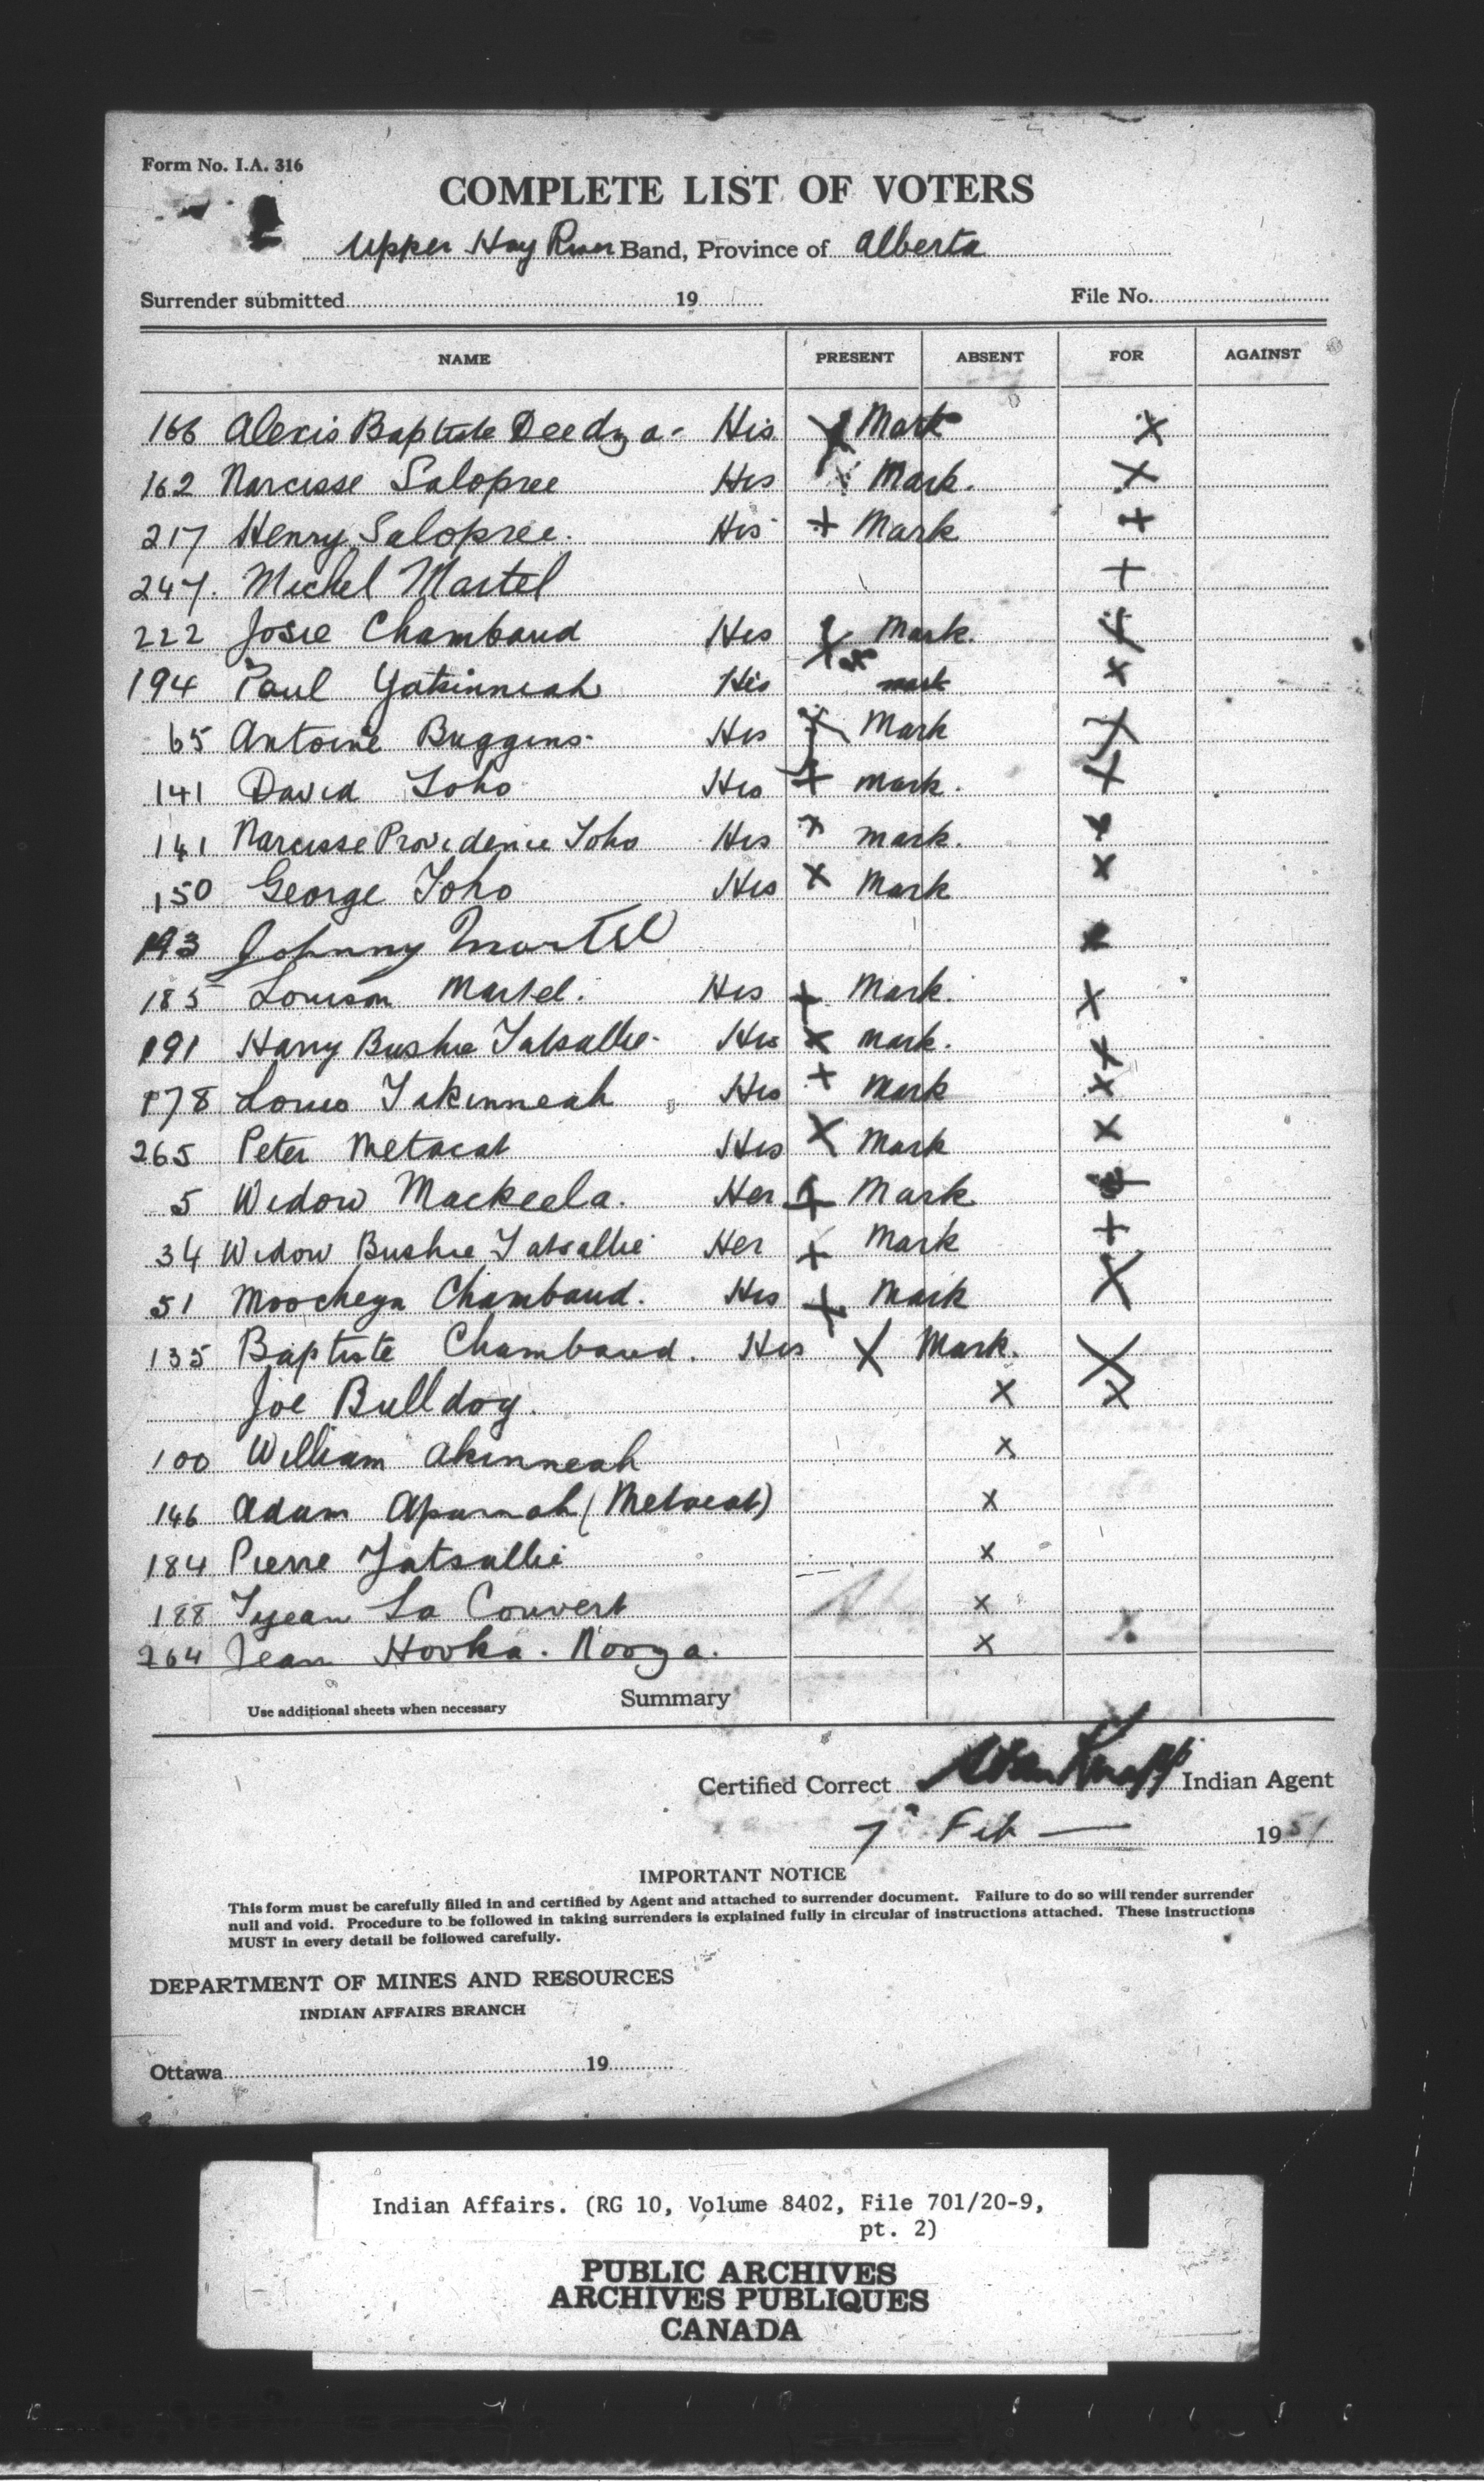 Form No. I.A. 316
COMPLETE LIST OF VOTERS
Upper Hay River Band, Province of Alberta
Surrender submitted 19 File No.
NAME PRESENT ABSENT FOR AGAINST
166 Alexis Baptiste Deedza. His X Mark X
162 Narcisse Salopree His X Mark. X
217 Henry Salopree. His + Mark +
247. Michel Martel +
222 Josie Chambaud His X Mark. X
194 Paul Yatsinneah His X mark X
65 Antoine Buggins. His X Mark X
141 David Toho His + Mark. X
141 Narcisse Providence Toho His X mark. X
150 George Toho His X Mark X
193 Johnny Martel
185 Louison Martel. His + Mark. X
191 Harry Bushie Tatsallie. His X Mark. X
178 Louis Takinneah His + Mark X
265 Peter Metacat His X Mark X
5 Widow Mackeela. Her + Mark +
34 Widow Bushie Tatsallie Her + Mark +
51 Moocheya Chambaud. His + Mark X
135 Baptiste Chambaud. His X Mark. X
Joe Bulldog. X X
100 William Akinneah X
146 Adam (Metacat) X
184 Pierre Tatsallie X
188 La Couvert X
264 Jean Hooka. Nooza. X
Use additional sheets when necessary Summary
Certified Correct Knapp Indian Agent
7" Feb — 1951
IMPORTANT NOTICE
This form must be carefully filled in and certified by Agent and attached to surrender document. Failure to do so will render surrender
null and void. Procedure to be followed in taking surrenders is explained fully in circular of instructions attached. These instructions
MUST in every detail be followed carefully.
DEPARTMENT OF MINES AND RESOURCES
INDIAN AFFAIRS BRANCH
Ottawa 19
Indian Affairs. (RG 10, Volume 8402, File 701/20-9,
pt. 2)
PUBLIC ARCHIVES
ARCHIVES PUBLIQUES
CANADA